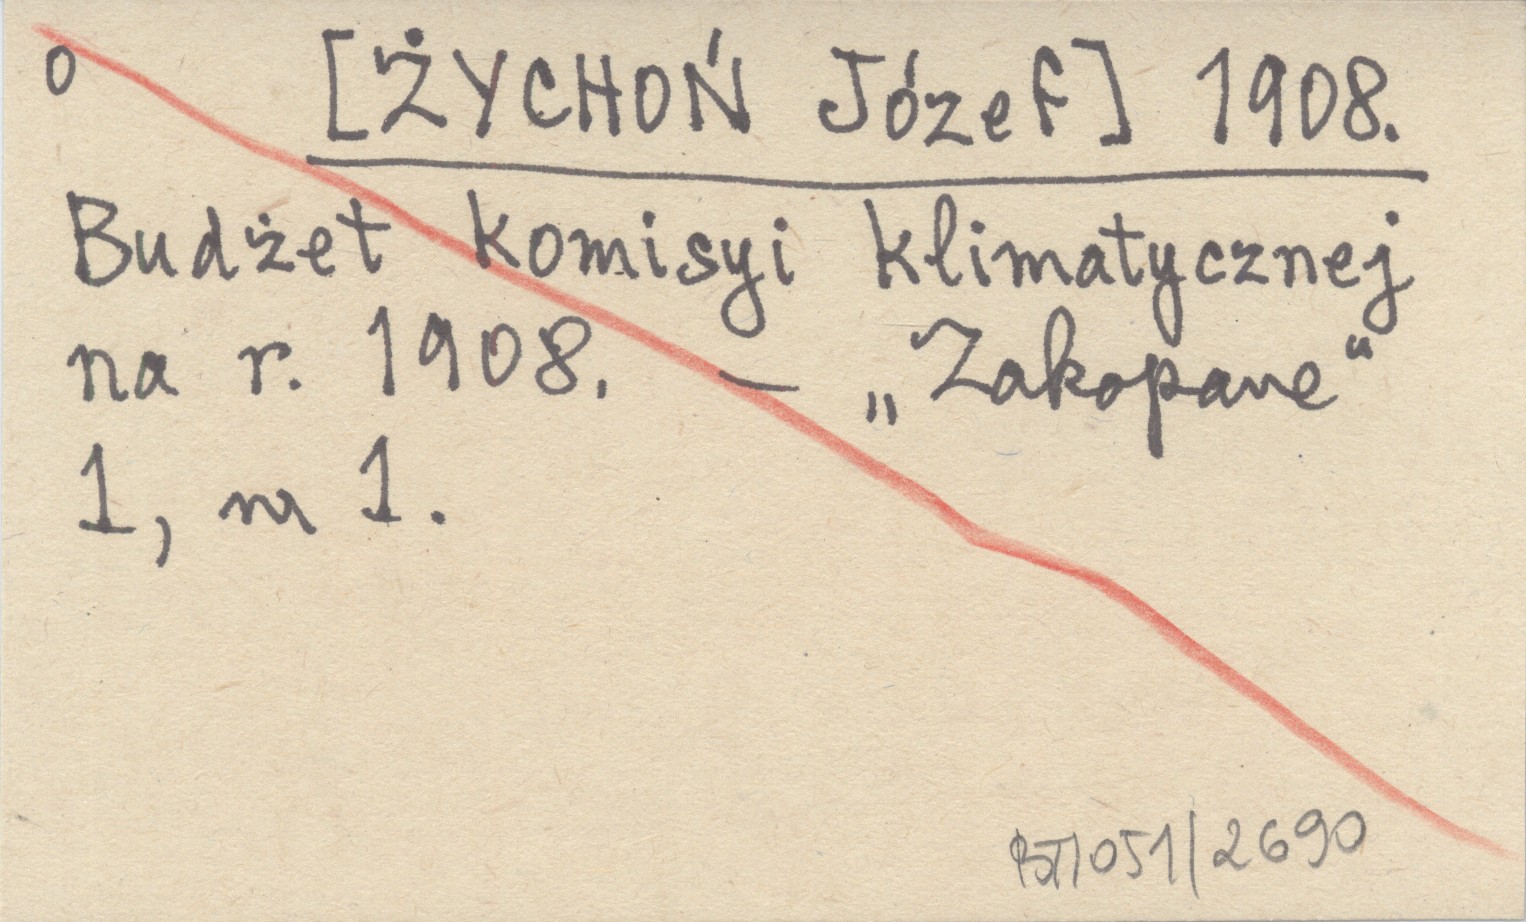 o [ŻYCHOŃ Józef] 1908.
Budżet komisyi klimatycznej
na r. 1908. — „Zakopane“
1, nr 1.
BT/051/2690